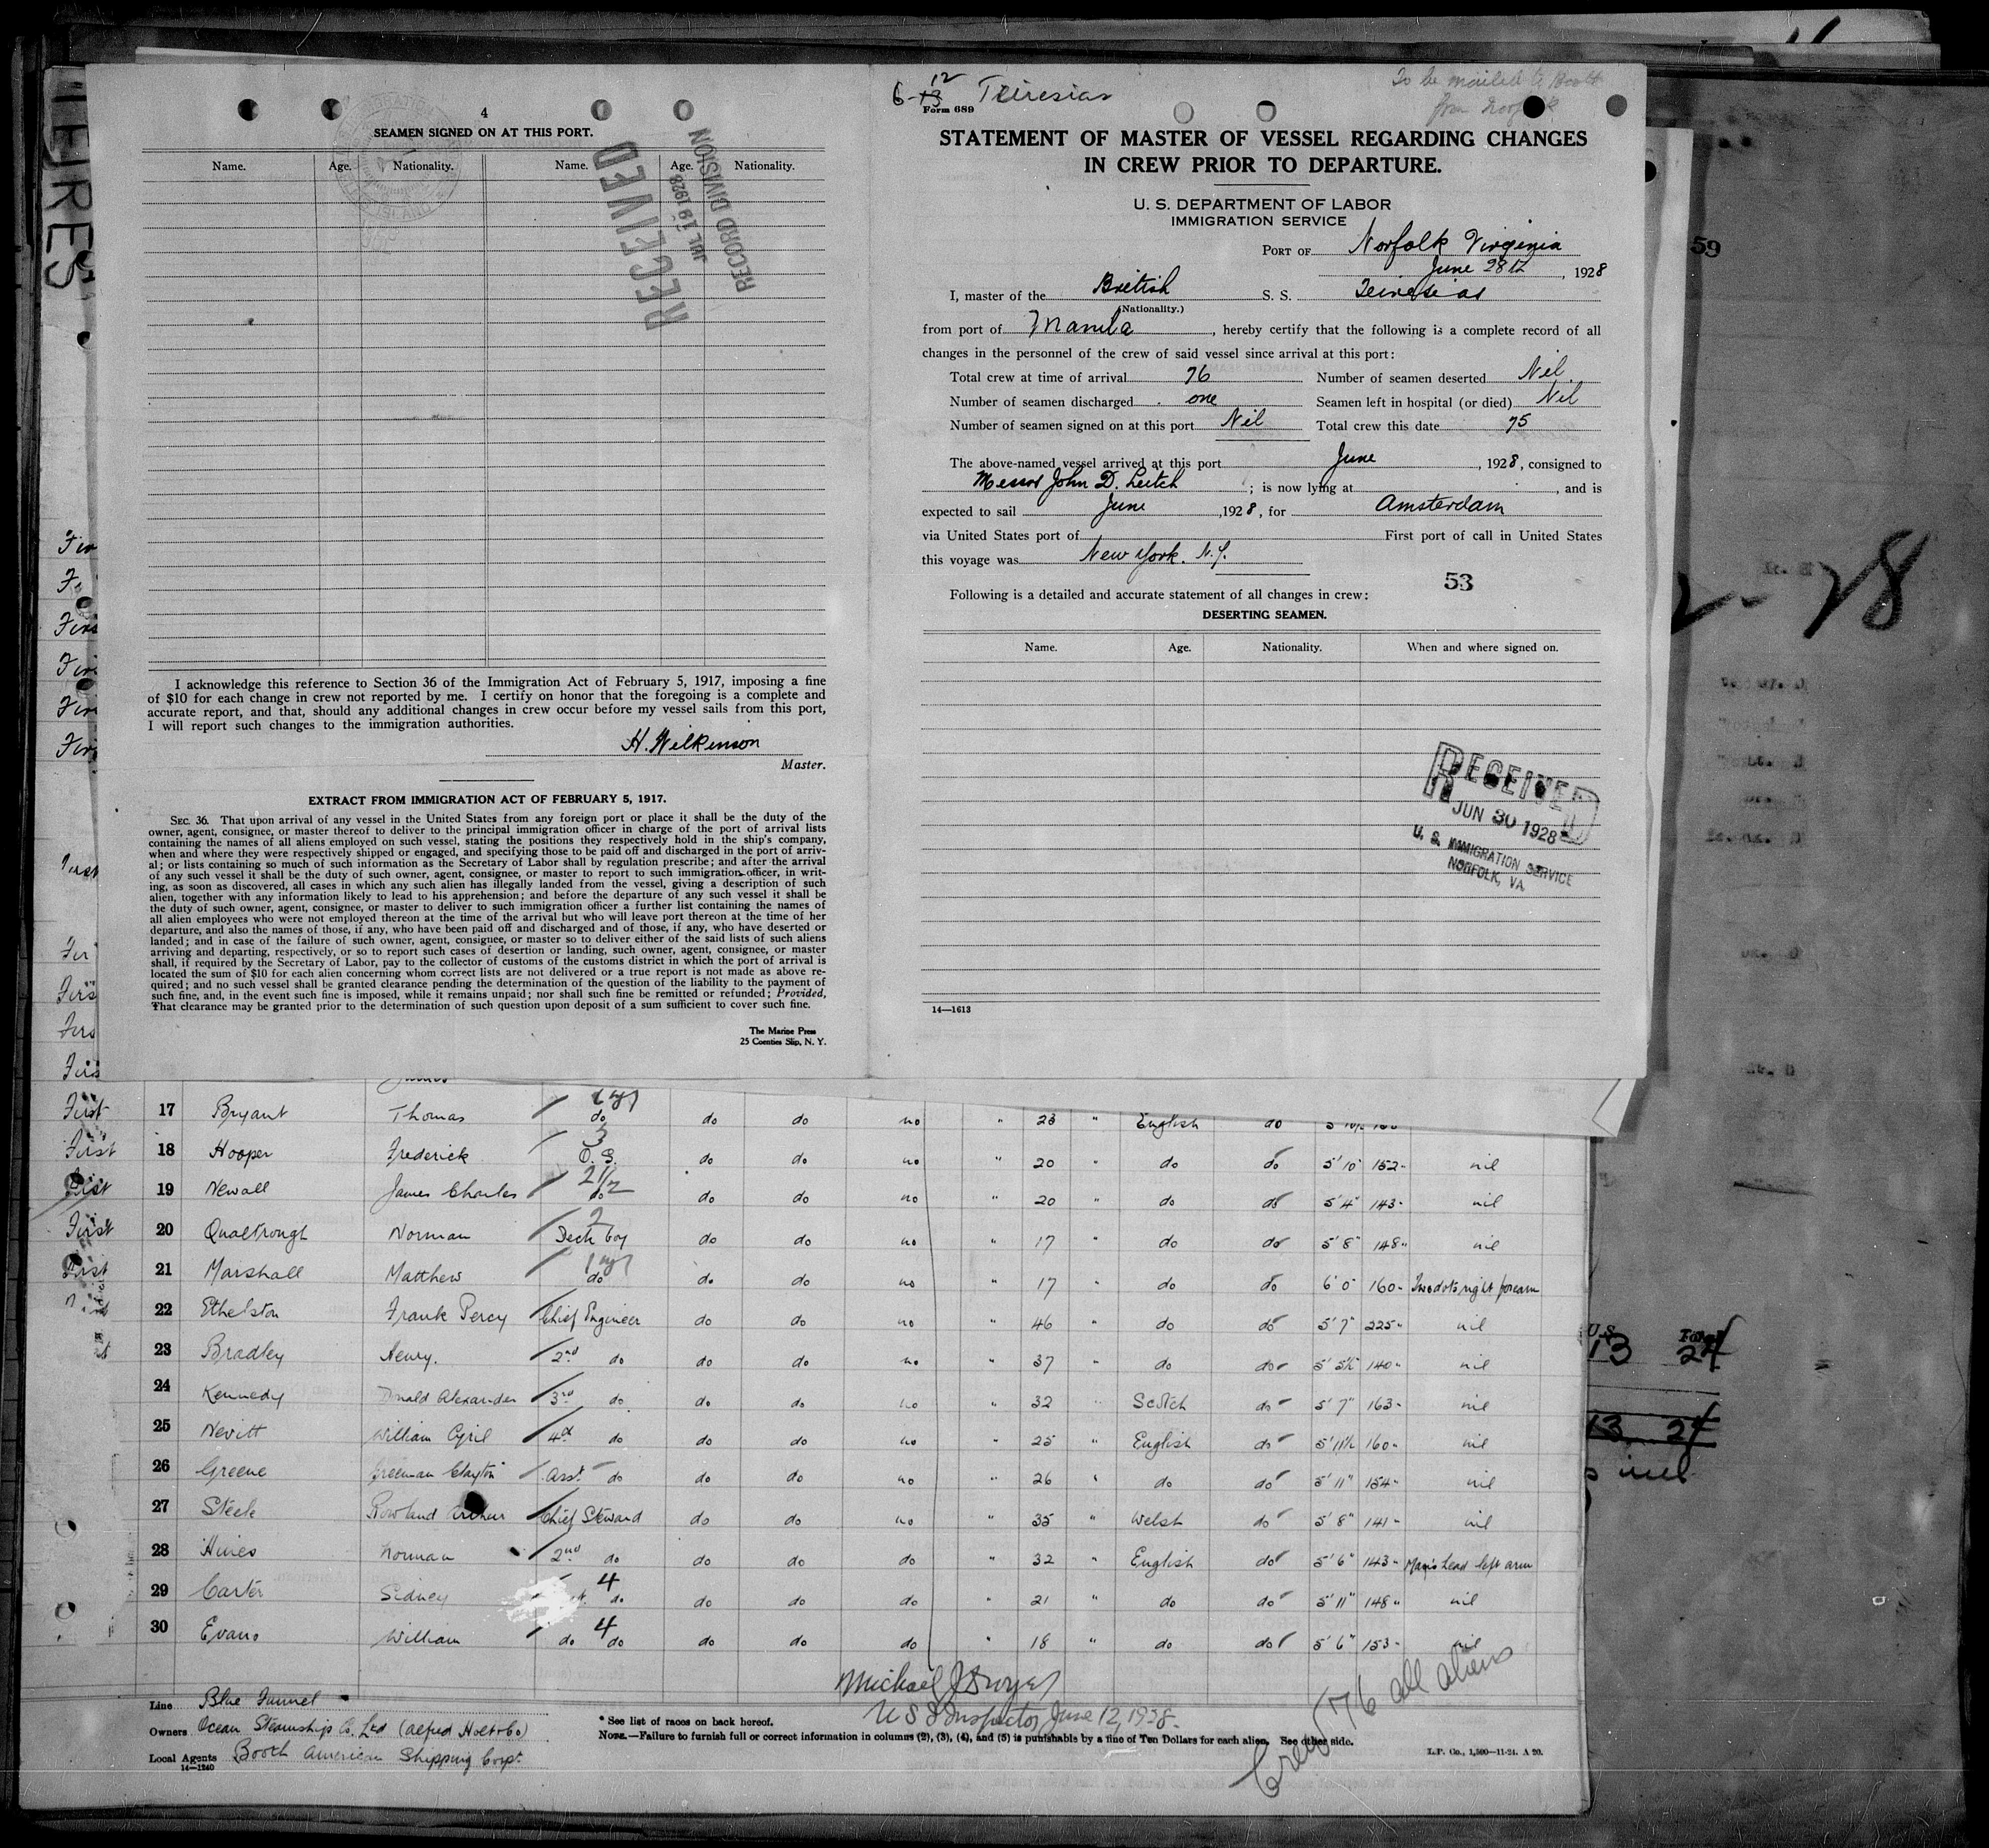 4
SEAMEN SIGNED ON AT THIS PORT.
Name. Age. Nationality. Name. Age. Nationality.
RECEIVED
JUL 19 1928
RECORD DIVISION
I acknowledge this reference to Section 36 of the Immigration Act of February 5, 1917, imposing a fine
of $10 for each change in crew not reported by me. I certify on honor that the foregoing is a complete and
accurate report, and that, should any additional changes in crew occur before my vessel sails from this port,
I will report such changes to the immigration authorities.
H. Wilkinson
Master.
EXTRACT FROM IMMIGRATION ACT OF FEBRUARY 5, 1917.
SEC. 36. That upon arrival of any vessel in the United States from any foreign port or place it shall be the duty of the
owner, agent, consignee, or master thereof to deliver to the principal immigration officer in charge of the port of arrival lists
containing the names of all aliens employed on such vessel, stating the positions they respectively hold in the ship's company,
when and where they were respectively shipped or engaged, and specifying those to be paid off and discharged in the port of arriv-
al; or lists containing so much of such information as the Secretary of Labor shall by regulation prescribe; and after the arrival
of any such vessel it shall be the duty of such owner, agent, consignee, or master to report to such immigration officer, in writ-
ing, as soon as discovered, all cases in which any such alien has illegally landed from the vessel, giving a description of such
alien, together with any information likely to lead to his apprehension; and before the departure of any such vessel it shall be
the duty of such owner, agent, consignee, or master to deliver to such immigration officer a further list containing the names of
all alien employees who were not employed thereon at the time of the arrival but who will leave port thereon at the time of her
departure, and also the names of those, if any, who have been paid off and discharged and of those, if any, who have deserted or
landed; and in case of the failure of such owner, agent, consignee, or master so to deliver either of the said lists of such aliens
arriving and departing, respectively, or so to report such cases of desertion or landing, such owner, agent, consignee, or master
shall, if required by the Secretary of Labor, pay to the collector of customs of the customs district in which the port of arrival is
located the sum of $10 for each alien concerning whom correct lists are not delivered or a true report is not made as above re-
quired; and no such vessel shall be granted clearance pending the determination of the question of the liability to the payment of
such fine, and, in the event such fine is imposed, while it remains unpaid; nor shall such fine be remitted or refunded; Provided,
That clearance may be granted prior to the determination of such question upon deposit of a sum sufficient to cover such fine.
The Marine Press
25 Coenties Slip, N. Y.
6-12 Teiresias
To be mailed to
from Norfolk
Form 689
STATEMENT OF MASTER OF VESSEL REGARDING CHANGES
IN CREW PRIOR TO DEPARTURE.
U. S. DEPARTMENT OF LABOR
IMMIGRATION SERVICE
PORT OF Norfolk Virginia
June 28th, 1928
I, master of the British S. S. Teiresias
(Nationality.)
from port of Manila, hereby certify that the following is a complete record of all
changes in the personnel of the crew of said vessel since arrival at this port:
Total crew at time of arrival 76 Number of seamen deserted Nil.
Number of seamen discharged one Seamen left in hospital (or died) Nil
Number of seamen signed on at this port Nil Total crew this date 75
The above-named vessel arrived at this port June, 1928, consigned to
Messrs John D. Leitch; is now lying at , and is
expected to sail June, 1928, for Amsterdam
via United States port of First port of call in United States
this voyage was New York. N.Y.
53
Following is a detailed and accurate statement of all changes in crew:
DESERTING SEAMEN.
Name. Age. Nationality. When and where signed on.
RECEIVED
JUN 30 1928
U. S. IMMIGRATION SERVICE
NORFOLK, VA.
14—1613
59
28
First 17 Bryant Thomas do do do no " 23 " English do
First 18 Hooper Frederick 3 O.S. do do no " 20 " do do 5' 10" 152 " nil
First 19 Newall James Charles 2 1/2 do do do no " 20 " do do 5' 4" 143 " nil
First 20 Qualtrough Norman 2 Deck boy do do no " 17 " do do 5' 8" 148 " nil
First 21 Marshall Matthew do do do no " 17 " do do 6' 0" 160 " Two dots right forearm
22 Ethelston Frank Percy Chief Engineer do do no " 46 " do do 5' 7" 225 " nil
23 Bradley Henry. 2nd do do do no " 37 " do do 5' 5½ 140 " nil
24 Kennedy Donald Alexander 3rd do do do no " 32 " Scotch do 5' 7" 163 " nil
25 Nevitt William Cyril 4th do do do no " 25 " English do 5' 11½ 160 " nil
26 Greene Freeman Clayton Asst. do do do no " 26 " do do 5' 11" 154 " nil
27 Steele Rowland Arthur Chief Steward do do no " 35 " Welsh do 5' 8" 141 " nil
28 Hines Norman 2nd do do do do " 32 " English do 5' 6" 143 " Man's head left arm
29 Carter Sidney 4 do do do do " 21 " do do 5' 11" 148 " nil
30 Evans William do 4 do do do do " 18 " do do 5' 6" 153 " nil
Michael J Dwyer
U S I Inspector June 12, 1928.
Crew 76 all aliens
Line Blue Funnel
Owners Ocean Steamship Co. Ltd (Alfred Holt & Co)
Local Agents Booth American Shipping Corpt.
14—1240
* See list of races on back hereof.
NOTE.—Failure to furnish full or correct information in columns (2), (3), (4), and (5) is punishable by a fine of Ten Dollars for each alien. See other side.
L.P. Co., 1,500—11-24. A 20.
U.S. Total
13 24
13 24